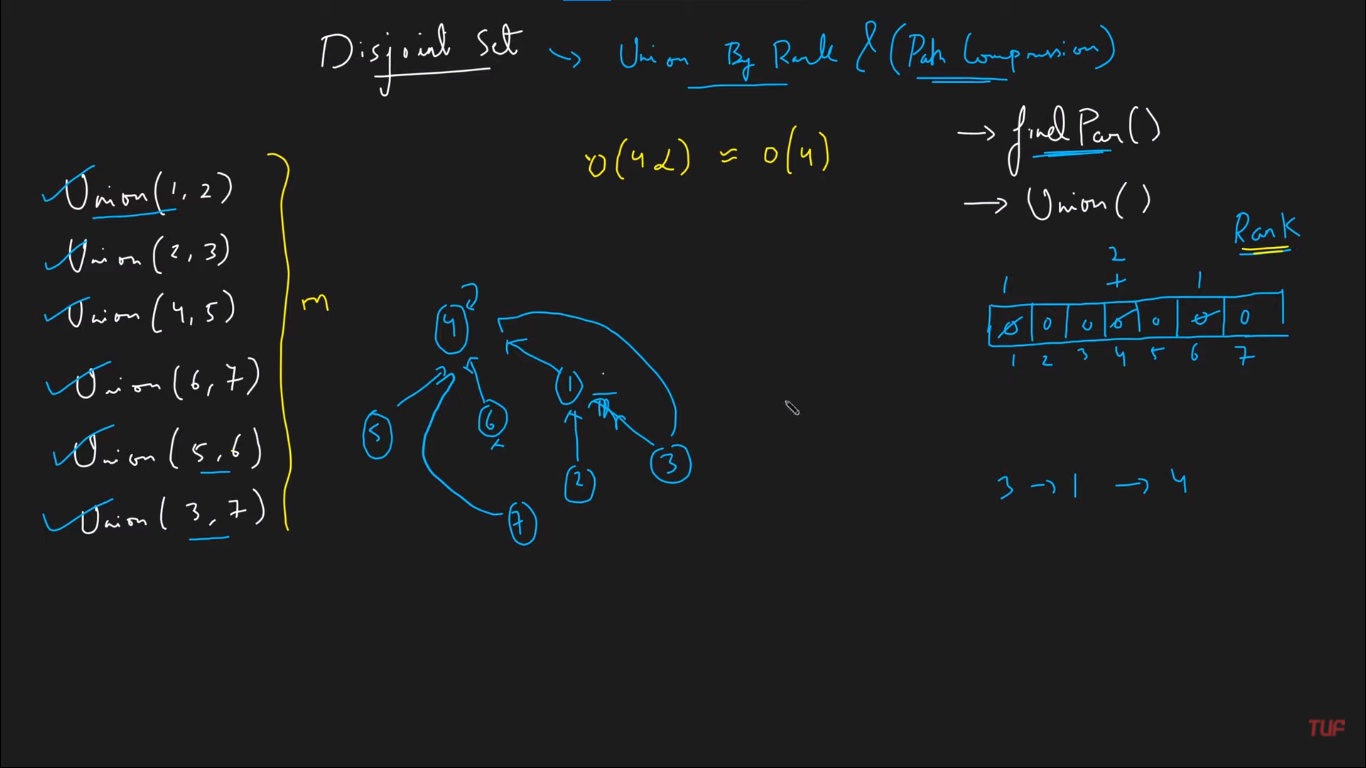 Disjoint Set → Union By Rank & (Path Compression)
O(4α) ≈ O(4)
→ findPar()
→ Union()
Union(1, 2)
Union(2, 3)
Union(4, 5)
Union(6, 7)
Union(5, 6)
Union(3, 7)
m
Rank
1 2 1
0 0 0 0 0 0 0
1 2 3 4 5 6 7
4
1
5 6
2 3
7
3 → 1 → 4
TUF